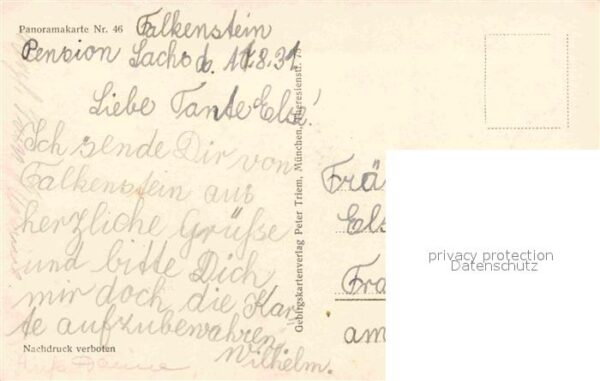 Panoramakarte Nr. 46
Falkenstein
Pension Sachs d. 10.8.31
Liebe Tante Else!
Ich sende Dir von
Falkenstein aus
herzliche Grüße
und bitte Dich
mir doch die Kar-
te aufzubewahren.
Wilhelm.
Nachdruck verboten
Gebirgskartenverlag Peter Triem, München, Theresienstr. 75
Frä
Els
Fra
am
privacy protection
Datenschutz